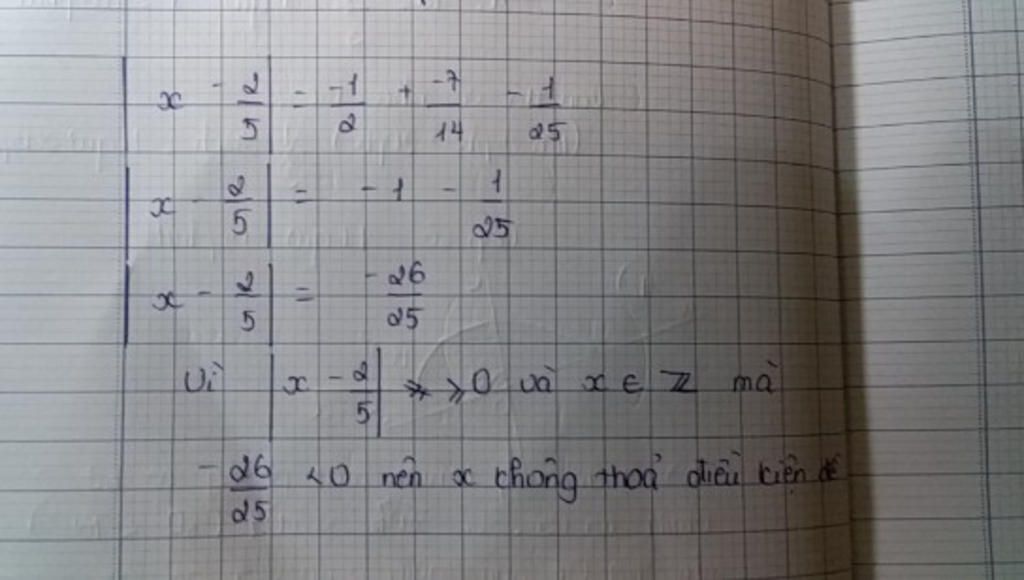 |x - 2/5| = -1/2 + -7/14 - 1/25
|x - 2/5| = -1 - 1/25
|x - 2/5| = -26/25
Vì |x - 2/5| ⩾ 0 và x ∈ Z mà
-26/25 < 0 nên x không thoả điều kiện đề